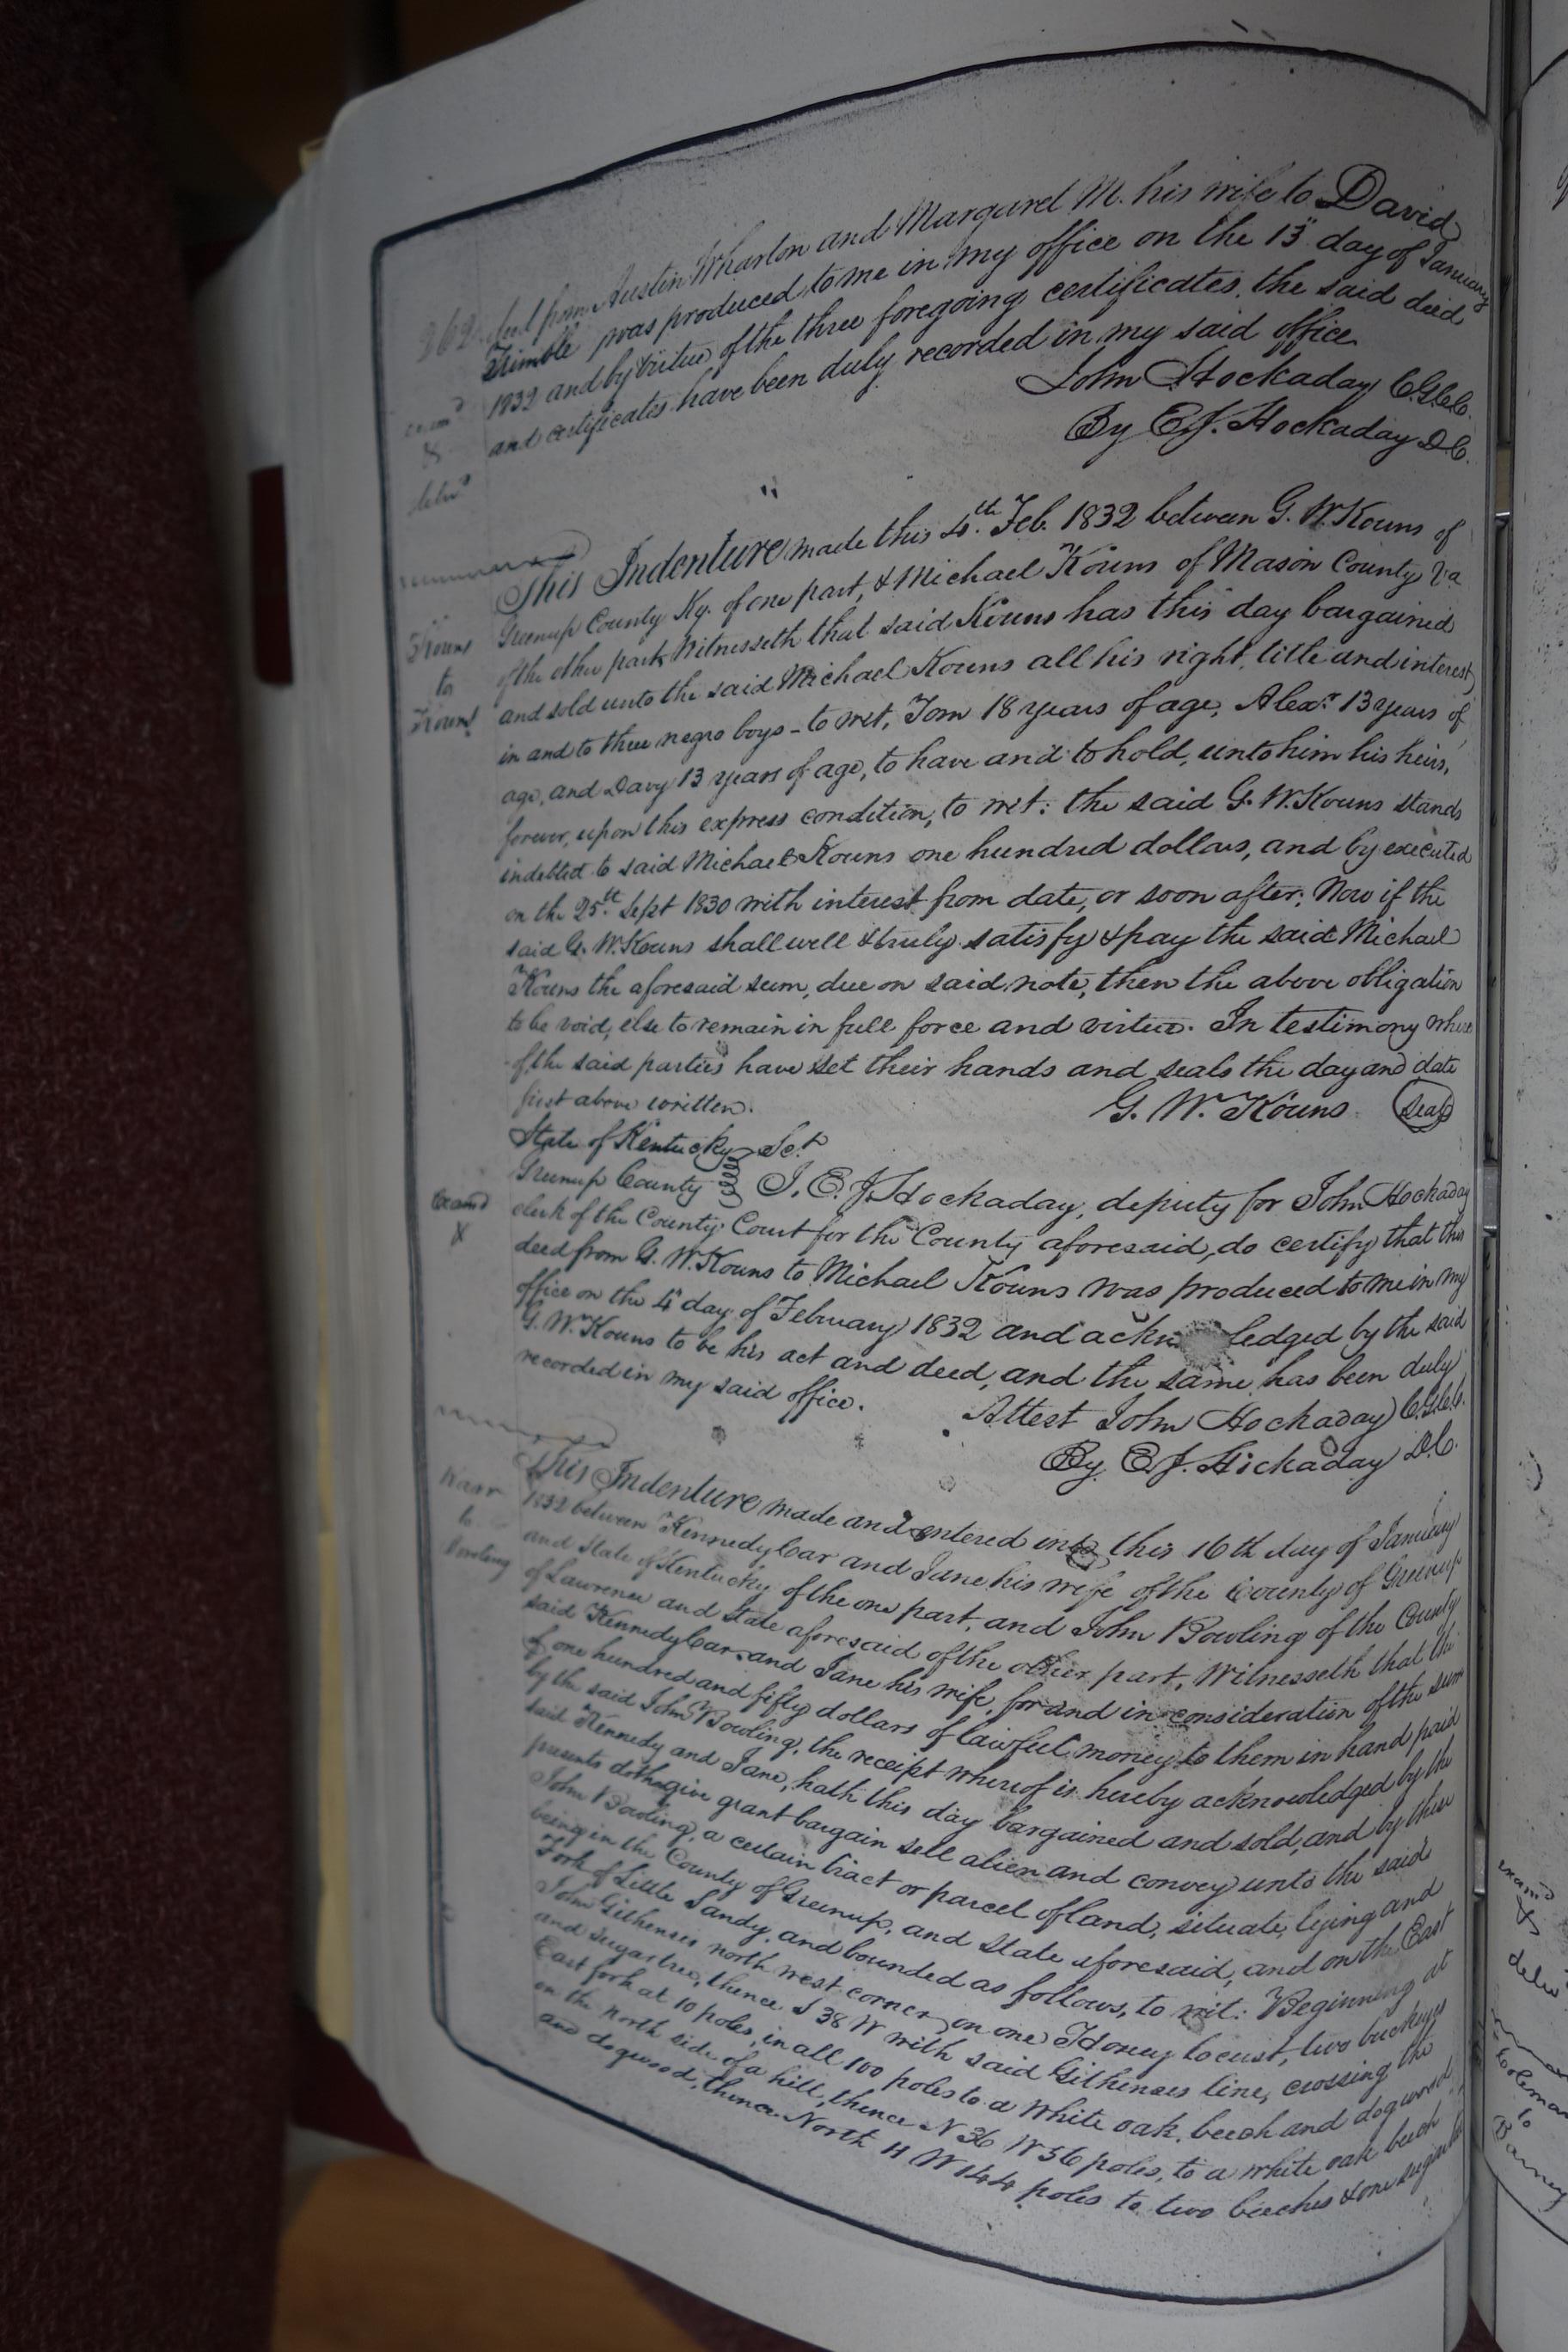 262 deed from Austin Wharton and Margaret M. his wife to David
Trimble was produced to me in my office on the 13" day of January
1832 and by virtue of the three foregoing certificates, the said deed
and certificates have been duly recorded in my said office.
John Hockaday C.G.C.C.
By E.J. Hockaday D.C.
exam^d
&
del^d
This Indenture made this 4th. Feb. 1832 between G. W. Kouns of
Greenup County Ky. of one part, & Michael Kouns of Mason County Va
of the other part, Witnesseth that said Kouns has this day bargained
and sold unto the said Michael Kouns all his right, title and interest,
in and to three negro boys - to wit, Tom 18 years of age, Alexr. 13 years of
age, and Davy 13 years of age, to have and to hold, unto him his heirs,
forever, upon this express condition, to wit: the said G. W. Kouns stands
indebted to said Michael Kouns one hundred dollars, and by executed
on the 25th. Sept 1830 with interest from date, or soon after, Now if the
said G. W. Kouns shall well & truly satisfy & pay the said Michael
Kouns the aforesaid sum, due on said note, then the above obligation
to be void, else to remain in full force and virtue. In testimony where
of the said parties have set their hands and seals the day and date
first above written.
G. W. Kouns Seal
Kouns
to
Kouns
State of Kentucky Sct
Greenup County I, E. J. Hockaday, deputy for John Hockaday
clerk of the County Court for the County aforesaid, do certify that this
deed from G. W. Kouns to Michael Kouns was produced to me in my
office on the 4" day of February 1832 and ackn ledged by the said
G. W. Kouns to be his act and deed, and the same has been duly
recorded in my said office.
Attest John Hockaday C.G.C.C.
By E. J. Hockaday D.C.
Examd
X
This Indenture made and entered into this 16th day of January
1832 between Kennedy Car and Jane his wife of the County of Greenup
and State of Kentucky of the one part, and John Bowling of the County
of Lawrence and State aforesaid of the other part, Witnesseth that the
said Kennedy Car and Jane his wife, for and in consideration of the sum
of one hundred and fifty dollars of lawful money to them in hand paid
by the said John Bowling, the receipt whereof is hereby acknowledged by the
said Kennedy and Jane, hath this day bargained and sold, and by these
presents doth give grant bargain sell alien and convey unto the said
John Bowling, a certain tract or parcel of land, situate, lying and
being in the County of Greenup, and State aforesaid, and on the East
Fork of Little Sandy, and bounded as follows, to wit: Beginning at
John Githenses north west corner, on one Honey locust, two buckeyes
and sugartree, thence S 38 W with said Githenses line, crossing the
East fork at 10 poles, in all 100 poles to a White oak, beech and dogwood,
on the north side of a hill, thence N 36 W 56 poles, to a white oak beech
and dogwood, thence North 11 W 144 poles to two beeches & one
Karr
to
Bowling
examd
&
deld
Coleman
to